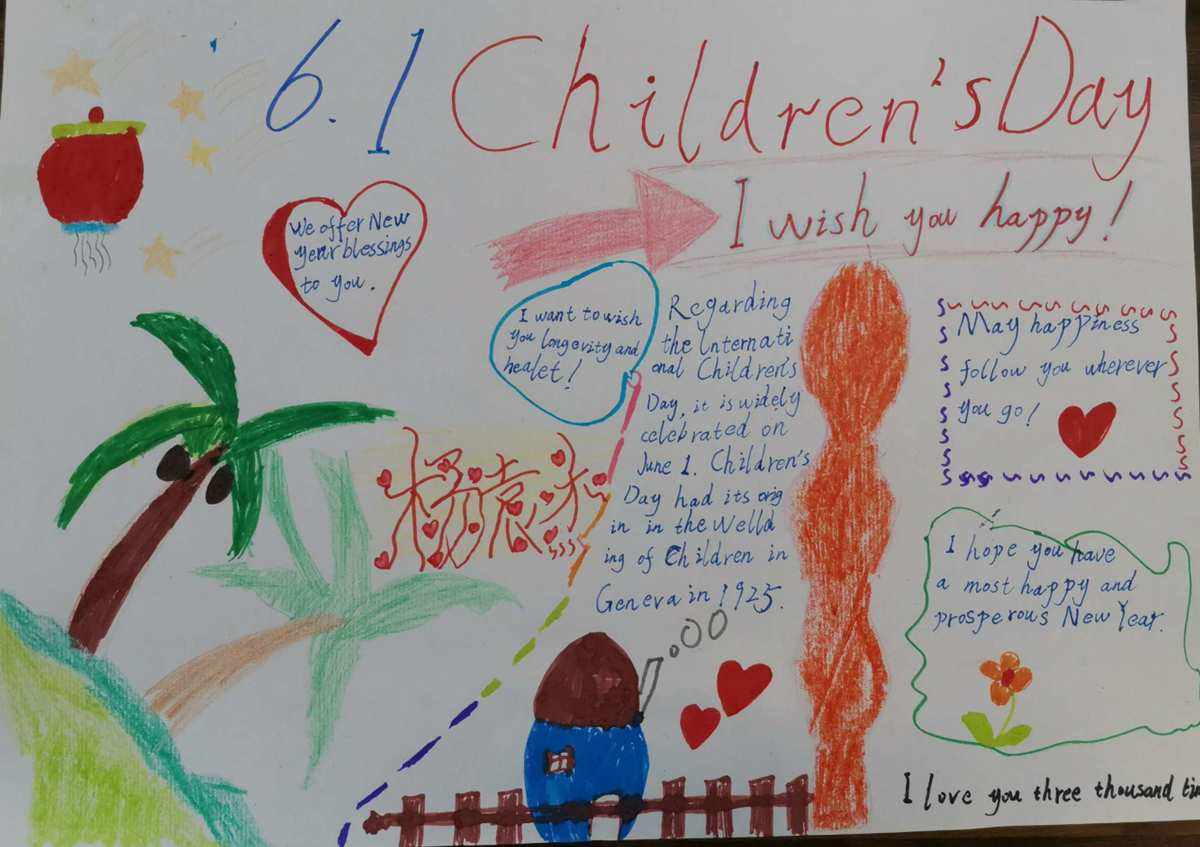 6.1 Children's Day
I wish you happy!
We offer New
year blessings
to you.
I want to wish
you longevity and
healet!
Regarding
the Internati
onal Children's
Day, it is widely
celebrated on
June 1. Children's
Day had its orig
in in the Wella
ing of Children in
Geneva in 1925.
May happiness
follow you wherever
you go!
杨袁
I hope you have
a most happy and
prosperous New Year.
I love you three thousand